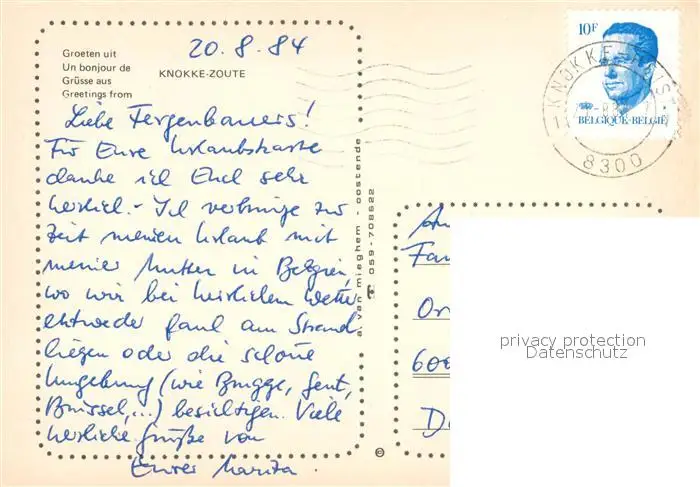 Groeten uit
Un bonjour de
Grüsse aus
Greetings from
KNOKKE-ZOUTE
20.8.84
Liebe Fergenbauers!
Für Eure Urlaubskarte
danke ich Euch sehr
herzlich. - Ich verbringe zur
Zeit meinen Urlaub mit
meiner Mutter in Belgien,
wo wir bei herrlichem Wetter
entweder faul am Strand
liegen oder die schöne
Umgebung (wie Brügge, Gent,
Brüssel,...) besichtigen. Viele
herzliche Grüße von
Eurer Marita.
a. van mieghem - oostende
059-708622
©
10F
BELGIQUE-BELGIË
KNOKKE-HEIST
8300
An
Fam
Or
600
D
privacy protection
Datenschutz